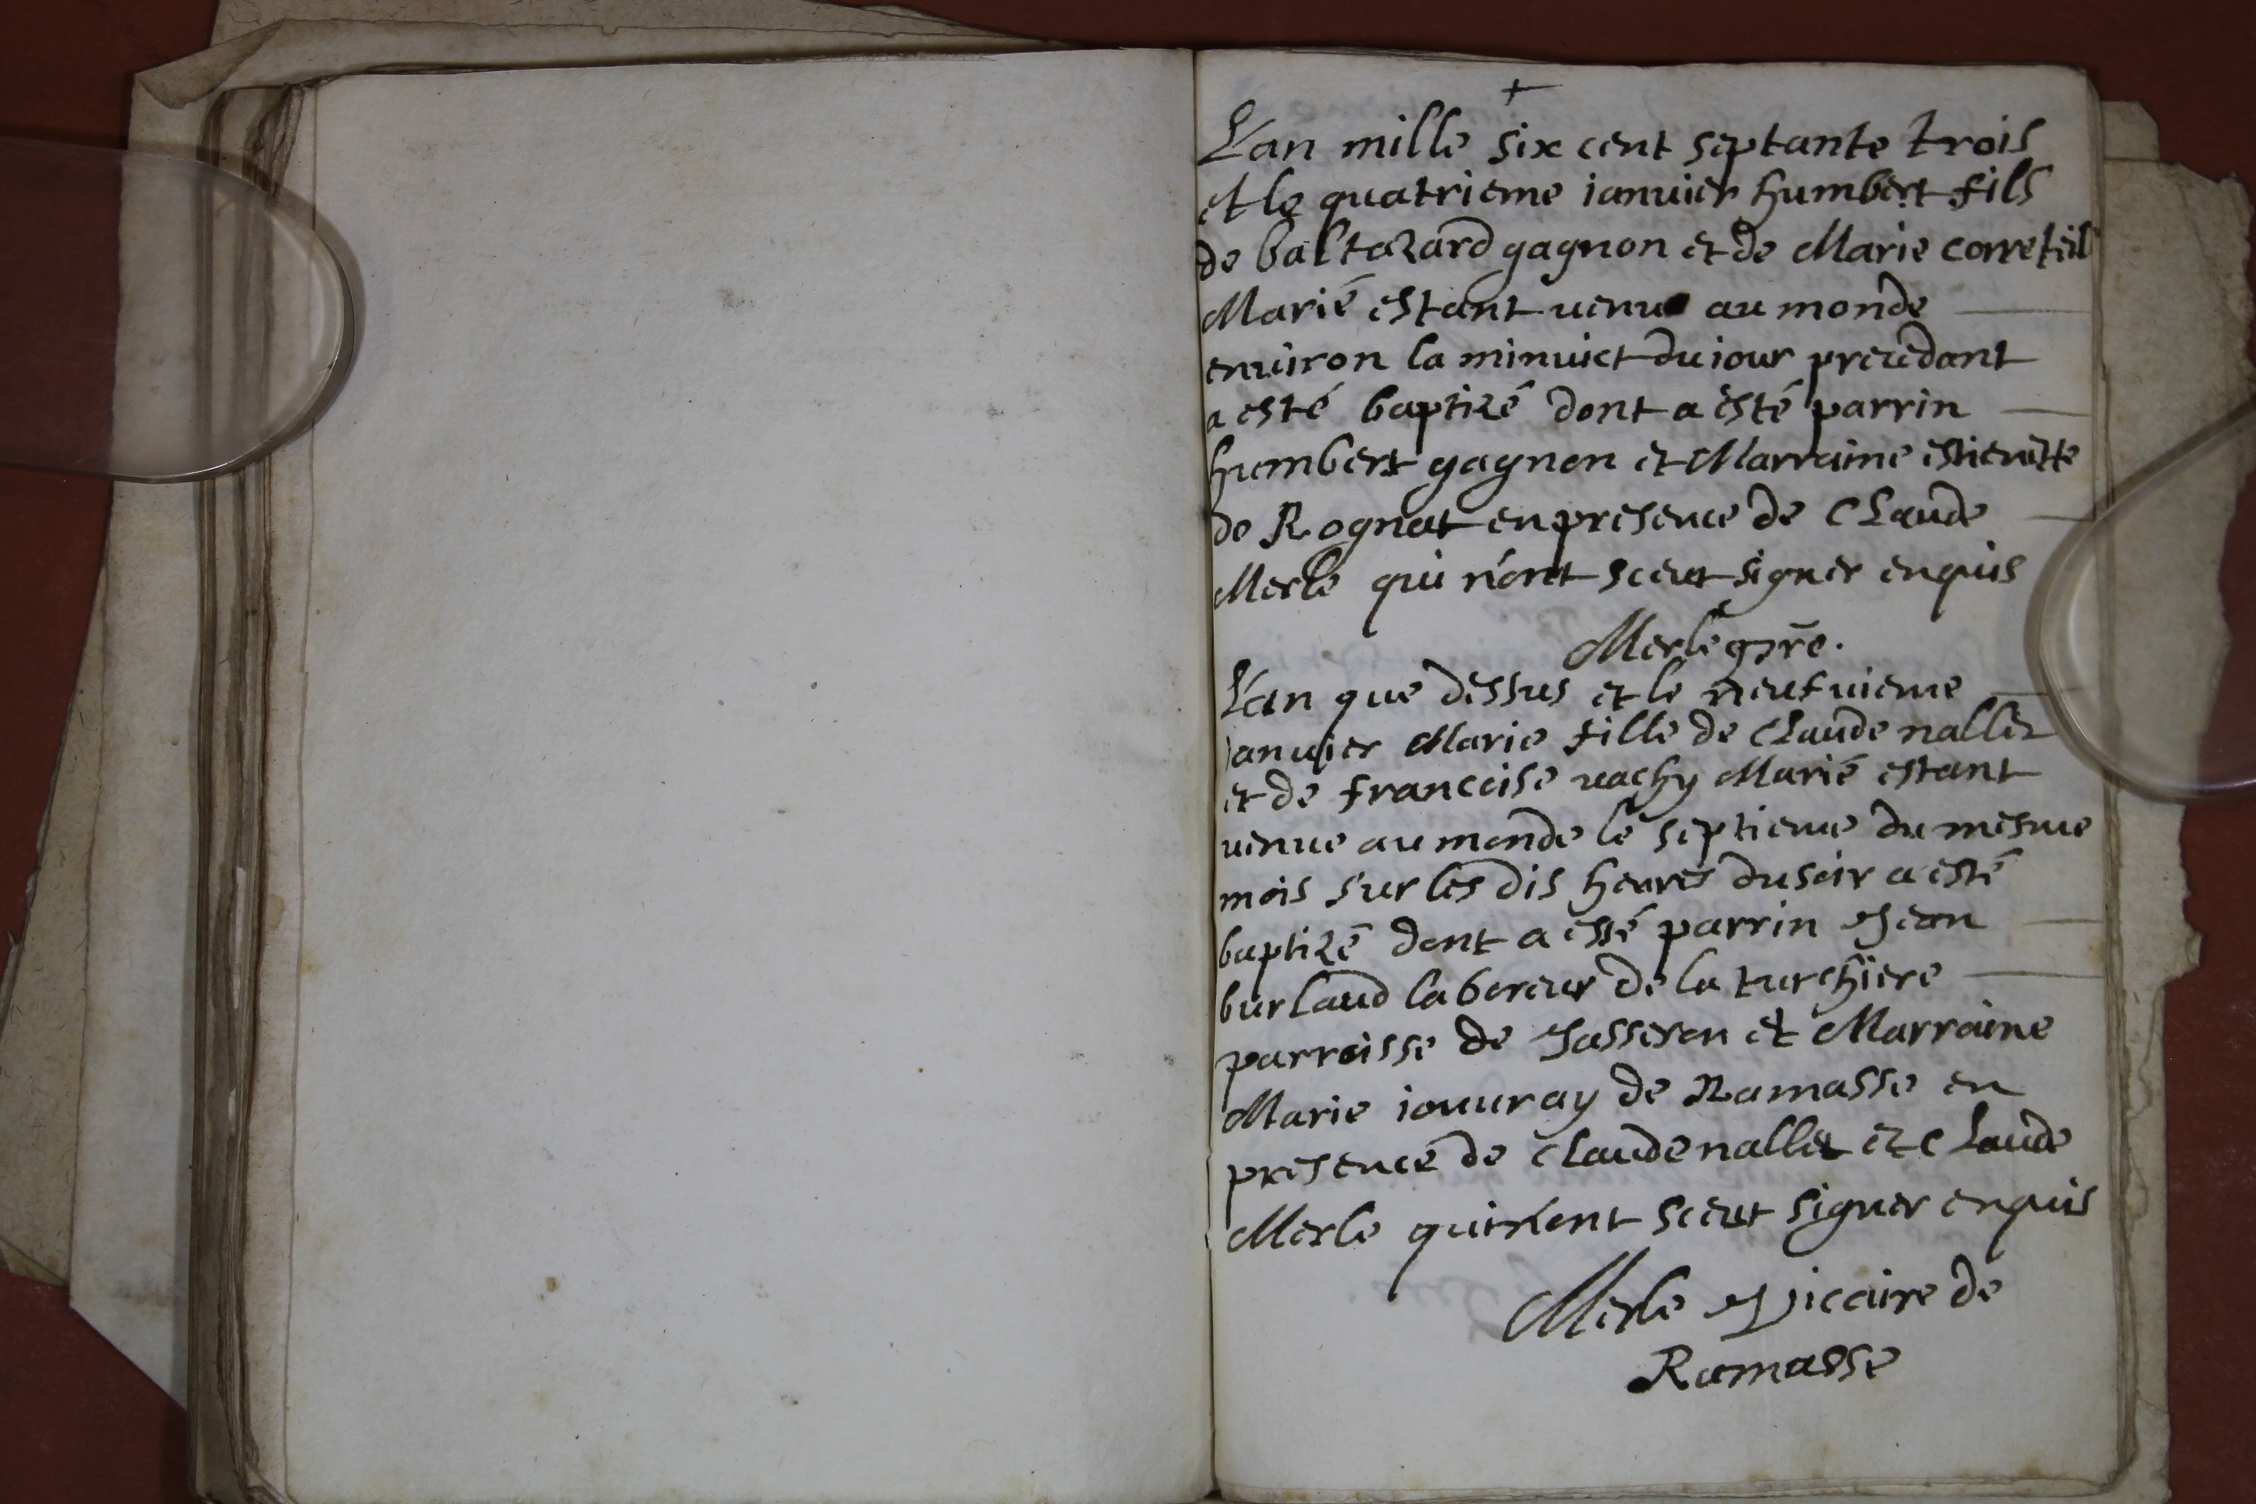 +
L'an mille six cent septante trois
et le quatrieme ianuier humbert fils
de baltazard gagnon et de Marie correteil
Marié estant venu au monde
enuiron la minuict du iour precedant
a esté baptizé dont a esté parrin
humbert gagnon et Marraine estienette
de Rognat en presence de Claude
Merle qui n'ont sceut signer enquis
Merle
L'an que dessus et le neufuieme
ianuier Marie fille de Claude nallet
et de francoise vachy Marié estant
venue au monde le septieme du mesme
mois sur les dis heures du soir a esté
baptizé dont a esté parrin Jean
burlaud laboreur de la turchiere
parroisse de Jasseron et Marraine
Marie iouuray de Ramasse en
presence de Claude nallet et Claude
Merle qui n'ont sceut signer enquis
Merle Viccaire de
Ramasse